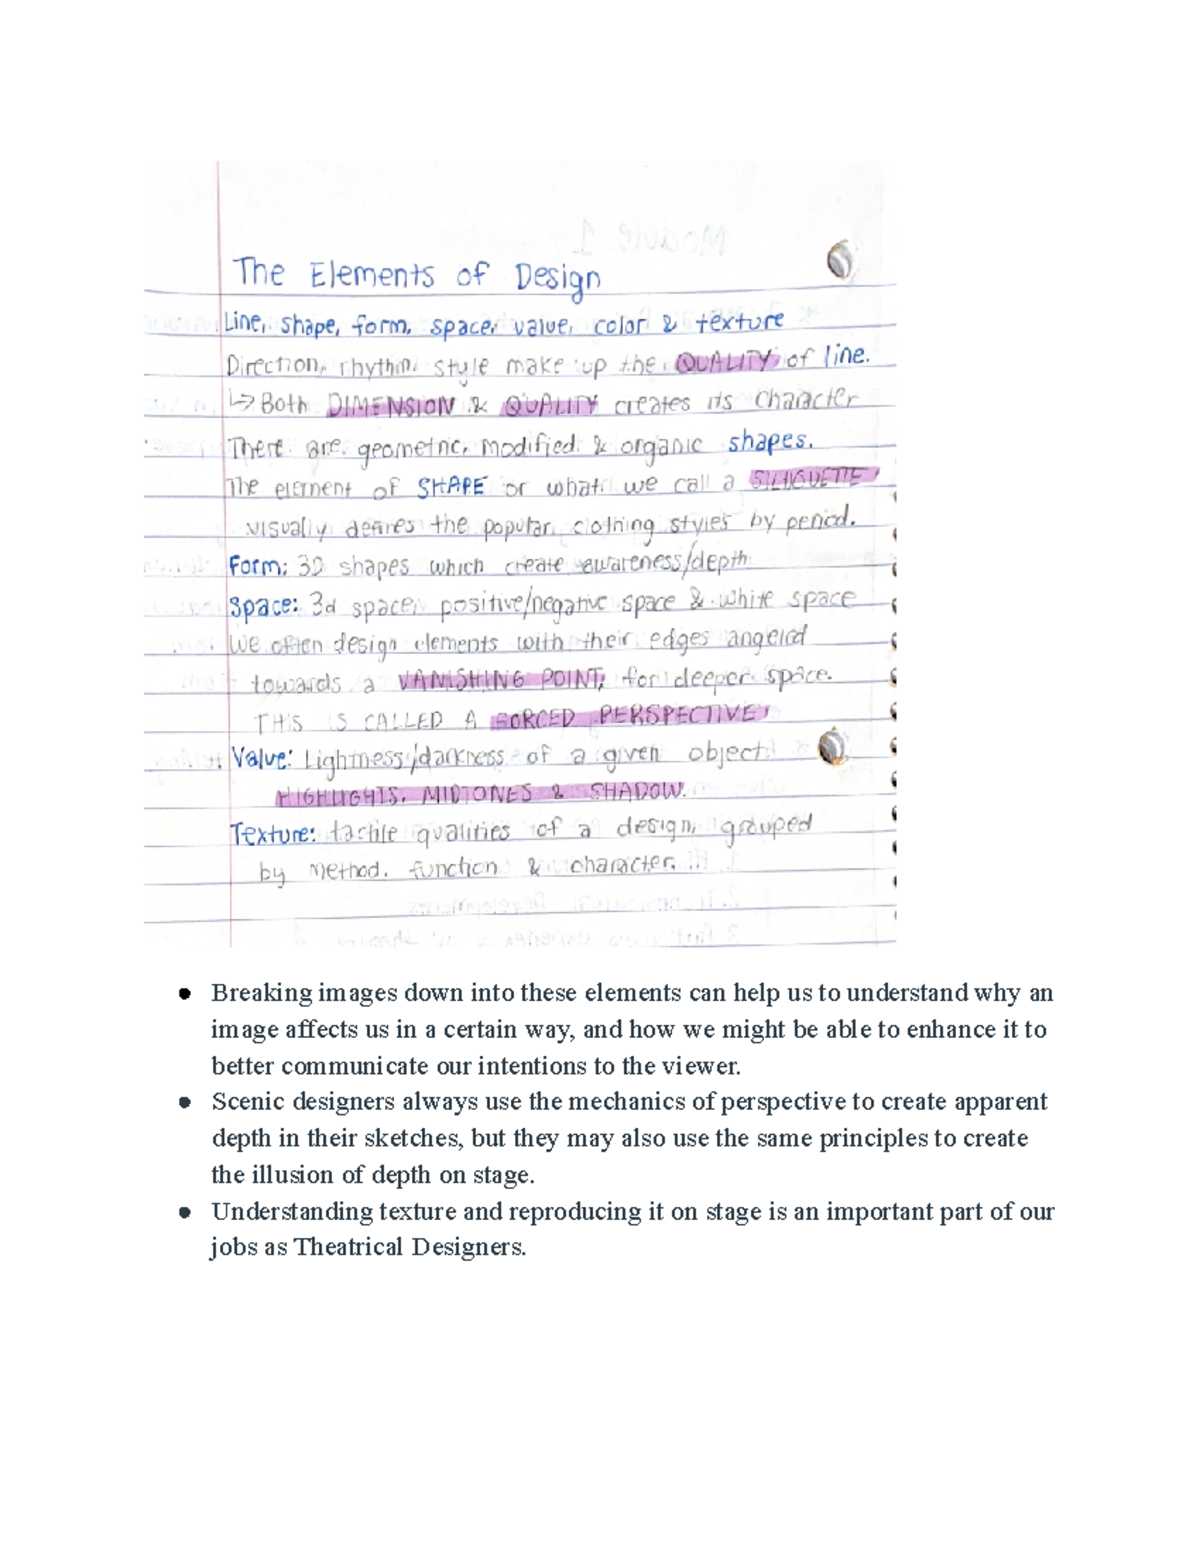 Module 1
The Elements of Design
Line, shape, form, space, value, color & texture
Direction, rhythm, style make up the QUALITY of line.
↳ Both DIMENSION & QUALITY creates its character
There are geometric, modified & organic shapes.
The element of SHAPE or what we call a SILHOUETTE
visually defines the popular clothing styles by period.
Form: 3D shapes which create awareness/depth
Space: 3d space, positive/negative space & white space
We often design elements with their edges angelrd
towards a VANISHING POINT, for deeper space.
THIS IS CALLED A FORCED PERSPECTIVE
Value: Lightness/darkness of a given object.
HIGHLIGHTS, MIDTONES & SHADOW.
Texture: tactile qualities of a design, grouped
by method, function & character.
● Breaking images down into these elements can help us to understand why an
image affects us in a certain way, and how we might be able to enhance it to
better communicate our intentions to the viewer.
● Scenic designers always use the mechanics of perspective to create apparent
depth in their sketches, but they may also use the same principles to create
the illusion of depth on stage.
● Understanding texture and reproducing it on stage is an important part of our
jobs as Theatrical Designers.